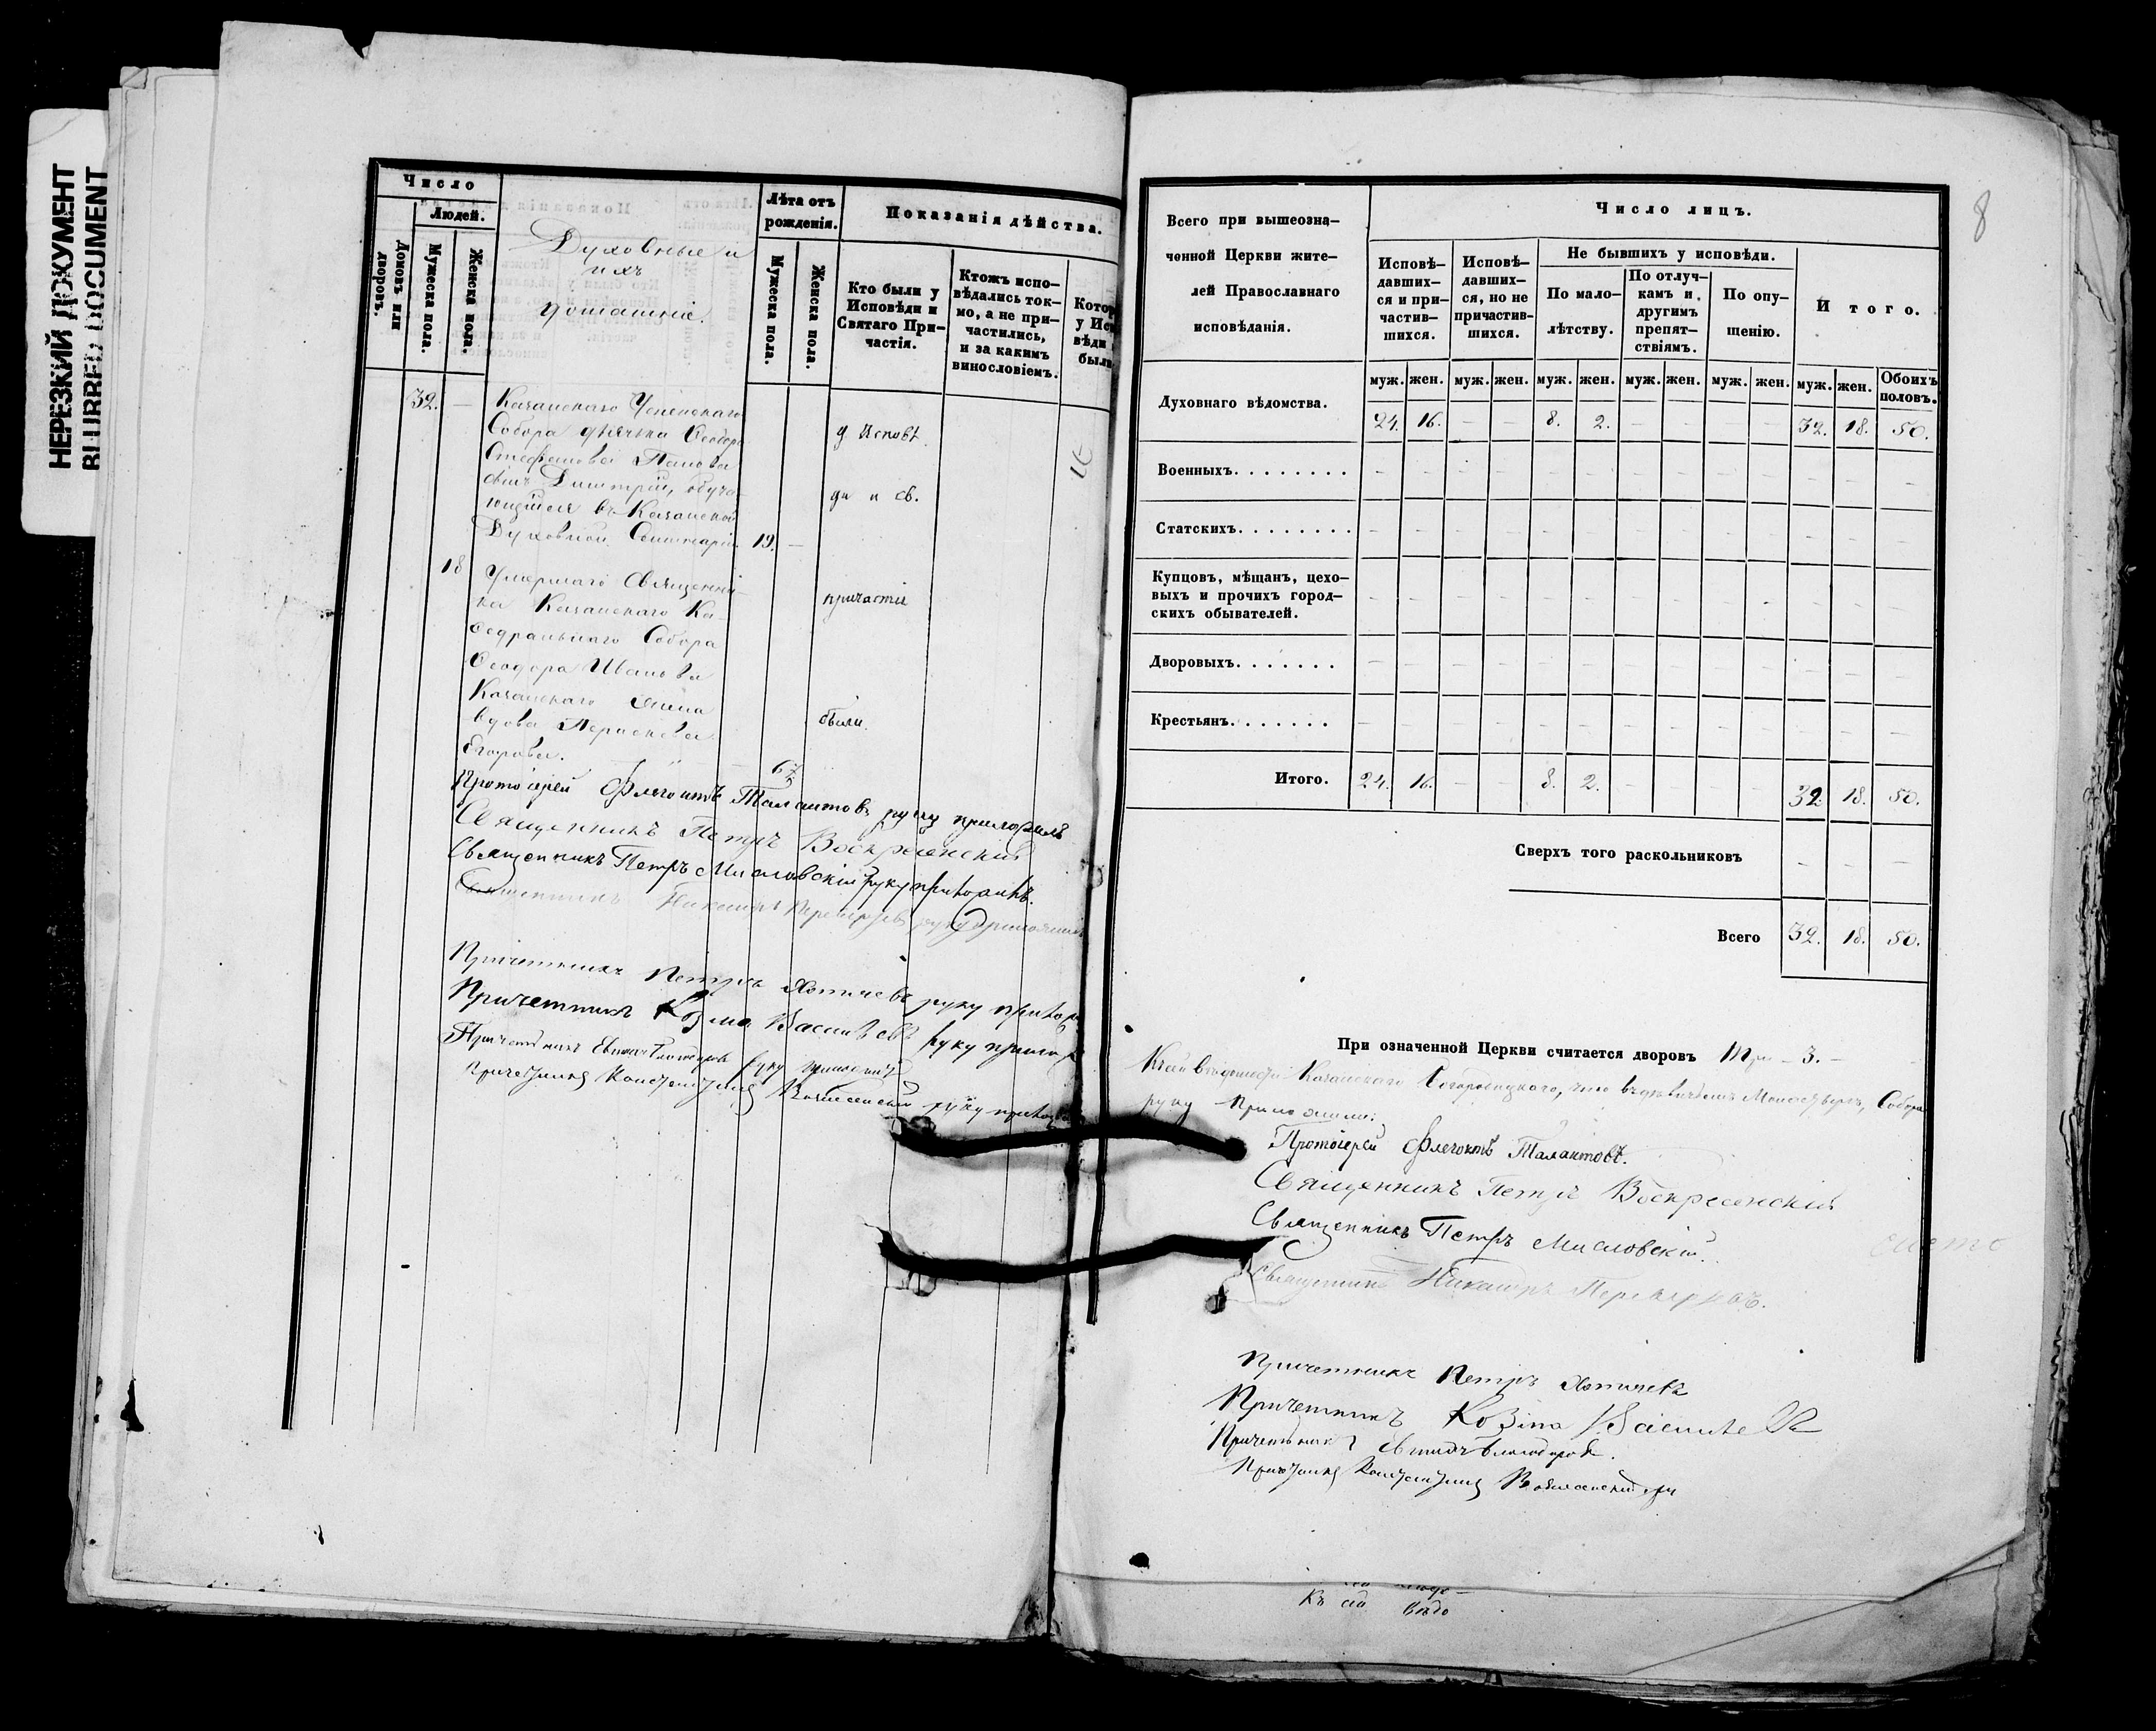 НЕРЕЗКИЙ ДОКУМЕНТ
BLURRED DOCUMENT
Число
Людей.
Домовъ или дворовъ.
Мужеска пола.
Женска пола.
Духовные и
ихъ
домашніе.
Лѣта отъ рожденія.
Мужеска пола.
Женска пола.
Показанія дѣйства.
Кто были у Исповѣди и Святаго Причастія.
Ктожъ исповѣдались токмо, а не причастились, и за какимъ винословіемъ.
Котор
у Исп
вѣди
были
32. —
Казанскаго Успенскаго
Собора дьячка Ѳеодора
Стефанова Попова
сынъ Димитрій, обуча-
ющійся въ Казанской
Духовной Семинаріи 19. —
у Исповѣ
ди и св.
18
Умершаго Священни-
ка Казанскаго Ка-
ѳедральнаго Собора
Ѳеодора Иванова
Казанскаго жена
вдова Парасковья
Егорова. 67
причастія
были.
Протоіерей Флегонтъ Талантовъ руку приложилъ
Священникъ Петръ Воскресенскій
Священникъ Петръ Мисловскій руку приложилъ.
Священникъ Никаноръ руку приложилъ
Причетникъ Петръ руку прилож
Причетникъ Козма Васильевъ руку прилож
Причетникъ руку приложилъ
Причетникъ Константинъ руку прилож
8
Всего при вышеозна-
ченной Церкви жите-
лей Православнаго
исповѣданія.
Число лицъ.
Исповѣ-
давших-
ся и при-
частив-
шихся.
Исповѣ-
давших-
ся, но не
причастив-
шихся.
Не бывшихъ у исповѣди.
По мало-
лѣтству.
По отлуч-
камъ и
другимъ
препят-
ствіямъ.
По опу-
щенію.
Итого.
муж. жен. муж. жен. муж. жен. муж. жен. муж. жен. муж. жен. Обоихъ половъ.
Духовнаго вѣдомства. 24. 16. — — 8. 2. — — — — 32. 18. 50.
Военныхъ. . . . . . . .
Статскихъ. . . . . . . .
Купцовъ, мѣщанъ, цехо-
выхъ и прочихъ город-
скихъ обывателей.
Дворовыхъ. . . . . . .
Крестьянъ. . . . . . .
Итого. 24. 16. — — 8. 2. — — — — 32. 18. 50.
Сверхъ того раскольниковъ — — —
Всего 32. 18. 50.
При означенной Церкви считается дворовъ три — 3. —
Къ сей вѣдомости Казанскаго Богородицкаго, что въ дѣвичьемъ Монастырѣ, Собора
руку приложили:
Протоіерей Флегонтъ Талантовъ.
Священникъ Петръ Воскресенскій
Священникъ Петръ Мисловскій.
Священникъ Никаноръ
Причетникъ Петръ
Причетникъ Козма Васильевъ
Причетникъ
Причетникъ Константинъ
Къ сей вѣдо